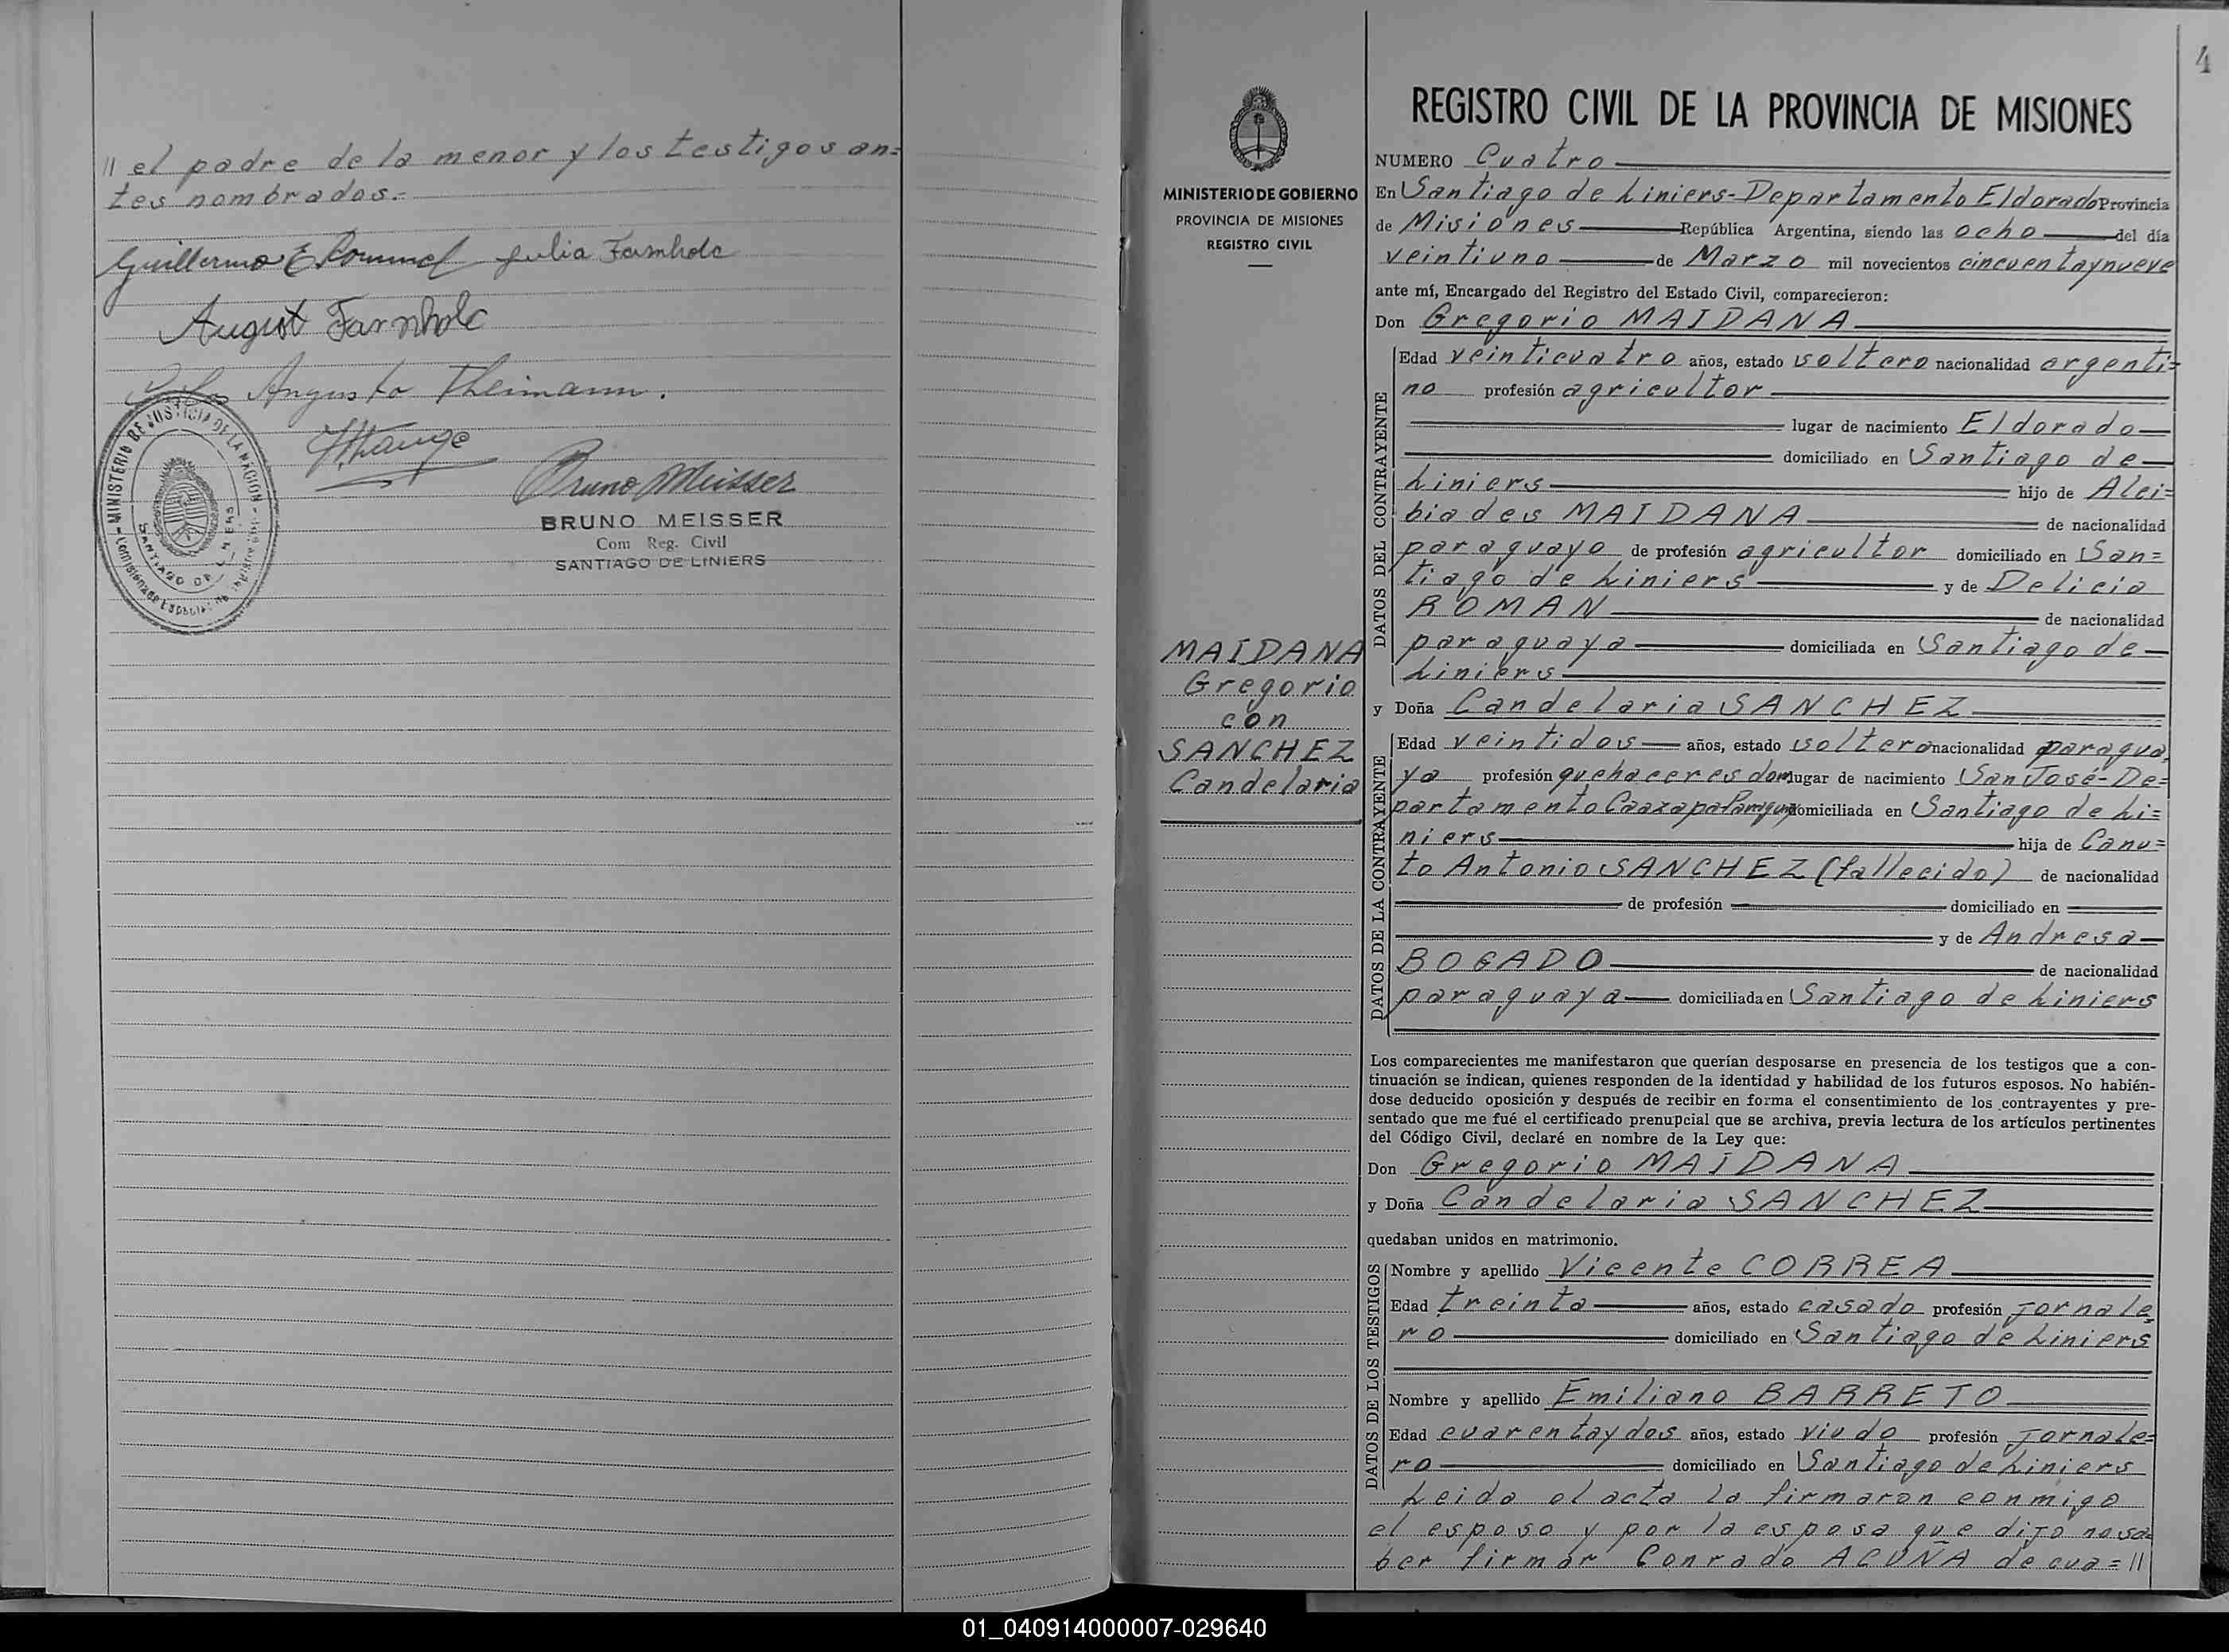 // el padre de la menor y los testigos an=
tes nombrados.-
Guillermo E Rommel Julia Farnholc
August Farnholc
Augusto Theimann.
Bruno Meisser
BRUNO MEISSER
Com Reg. Civil
SANTIAGO DE LINIERS
MINISTERIO DE JUSTICIA DE LA NACION
SANTIAGO DE LINIERS
4
MINISTERIO DE GOBIERNO
PROVINCIA DE MISIONES
REGISTRO CIVIL
MAIDANA
Gregorio
con
SANCHEZ
Candelaria
REGISTRO CIVIL DE LA PROVINCIA DE MISIONES
NUMERO Cuatro
En Santiago de Liniers-Departamento Eldorado Provincia
de Misiones República Argentina, siendo las ocho del día
veintiuno de Marzo mil novecientos cincuentaynueve
ante mí, Encargado del Registro del Estado Civil, comparecieron:
Don Gregorio MAIDANA
DATOS DEL CONTRAYENTE
Edad veinticuatro años, estado soltero nacionalidad argenti=
no profesión agricultor
lugar de nacimiento Eldorado
domiciliado en Santiago de
Liniers hijo de Alci=
biades MAIDANA de nacionalidad
paraguayo de profesión agricultor domiciliado en San=
tiago de Liniers y de Delicia
ROMAN de nacionalidad
paraguaya domiciliada en Santiago de
Liniers
y Doña Candelaria SANCHEZ
DATOS DE LA CONTRAYENTE
Edad veintidos años, estado soltera nacionalidad paragua
ya profesión quehaceres dom lugar de nacimiento San José-De=
partamento Caazapa Paraguay domiciliada en Santiago de Li=
niers hija de Canu=
to Antonio SANCHEZ (fallecido) de nacionalidad
de profesión domiciliado en
y de Andresa
BOGADO de nacionalidad
paraguaya domiciliada en Santiago de Liniers
Los comparecientes me manifestaron que querían desposarse en presencia de los testigos que a con-
tinuación se indican, quienes responden de la identidad y habilidad de los futuros esposos. No habién-
dose deducido oposición y después de recibir en forma el consentimiento de los contrayentes y pre-
sentado que me fué el certificado prenupcial que se archiva, previa lectura de los artículos pertinentes
del Código Civil, declaré en nombre de la Ley que:
Don Gregorio MAIDANA
y Doña Candelaria SANCHEZ
quedaban unidos en matrimonio.
DATOS DE LOS TESTIGOS
Nombre y apellido Vicente CORREA
Edad treinta años, estado casado profesión Jornale
ro domiciliado en Santiago de Liniers
Nombre y apellido Emiliano BARRETO
Edad cuarentaydos años, estado viudo profesión Jornale=
ro domiciliado en Santiago de Liniers
Leida el acta la firmaron conmigo
el esposo y por la esposa que dijo no sa=
ber firmar Conrado ACUÑA de cua=//
01_040914000007-029640